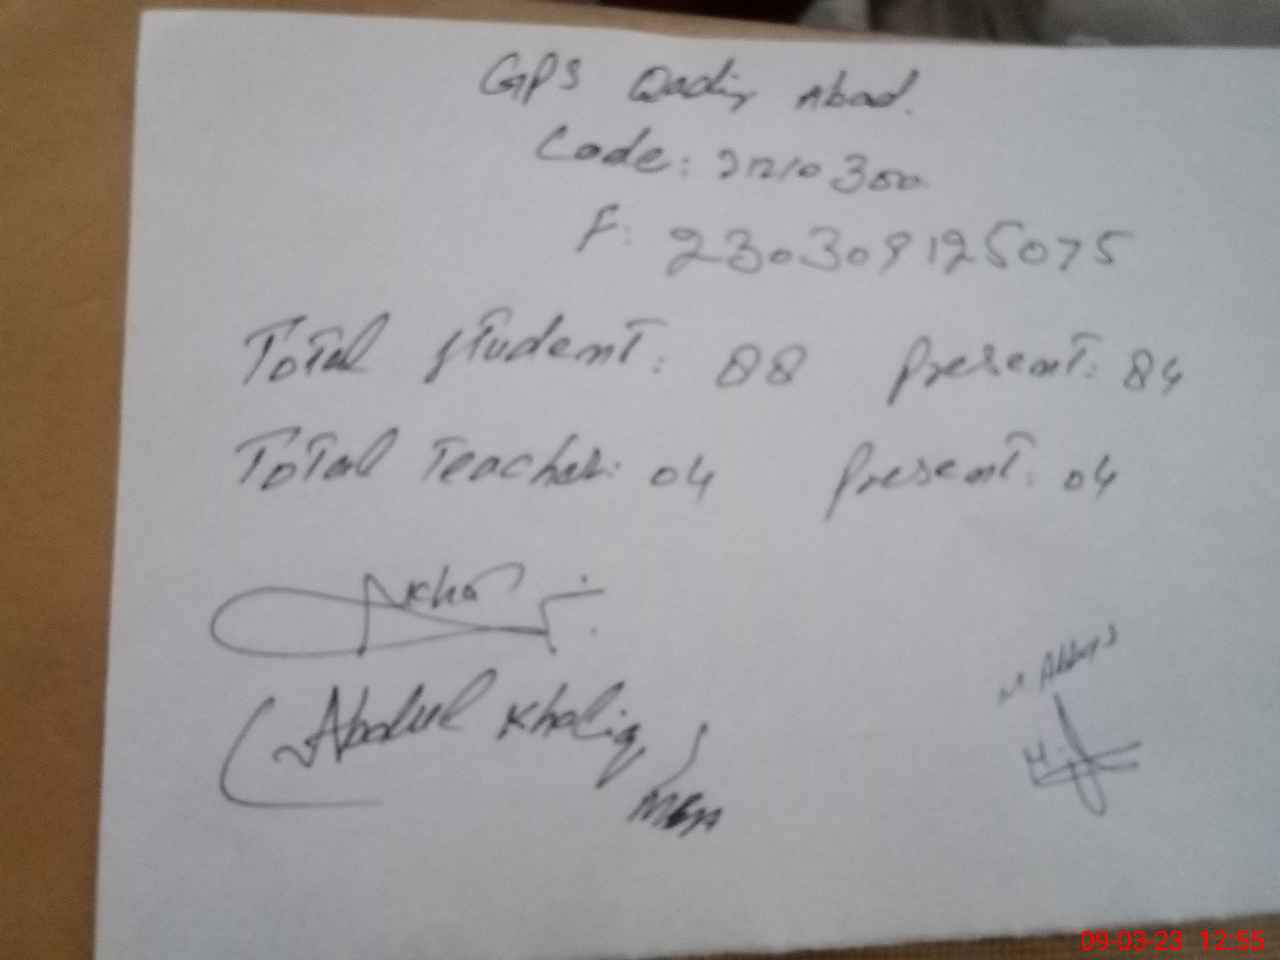 GPS Qadir Abad.
Code: 2210300
F: 230309125075
Total student: 88 Present: 84
Total Teacher: 04 Present: 04
(Abdul Khaliq)
M Abbas
09-03-23 12:55